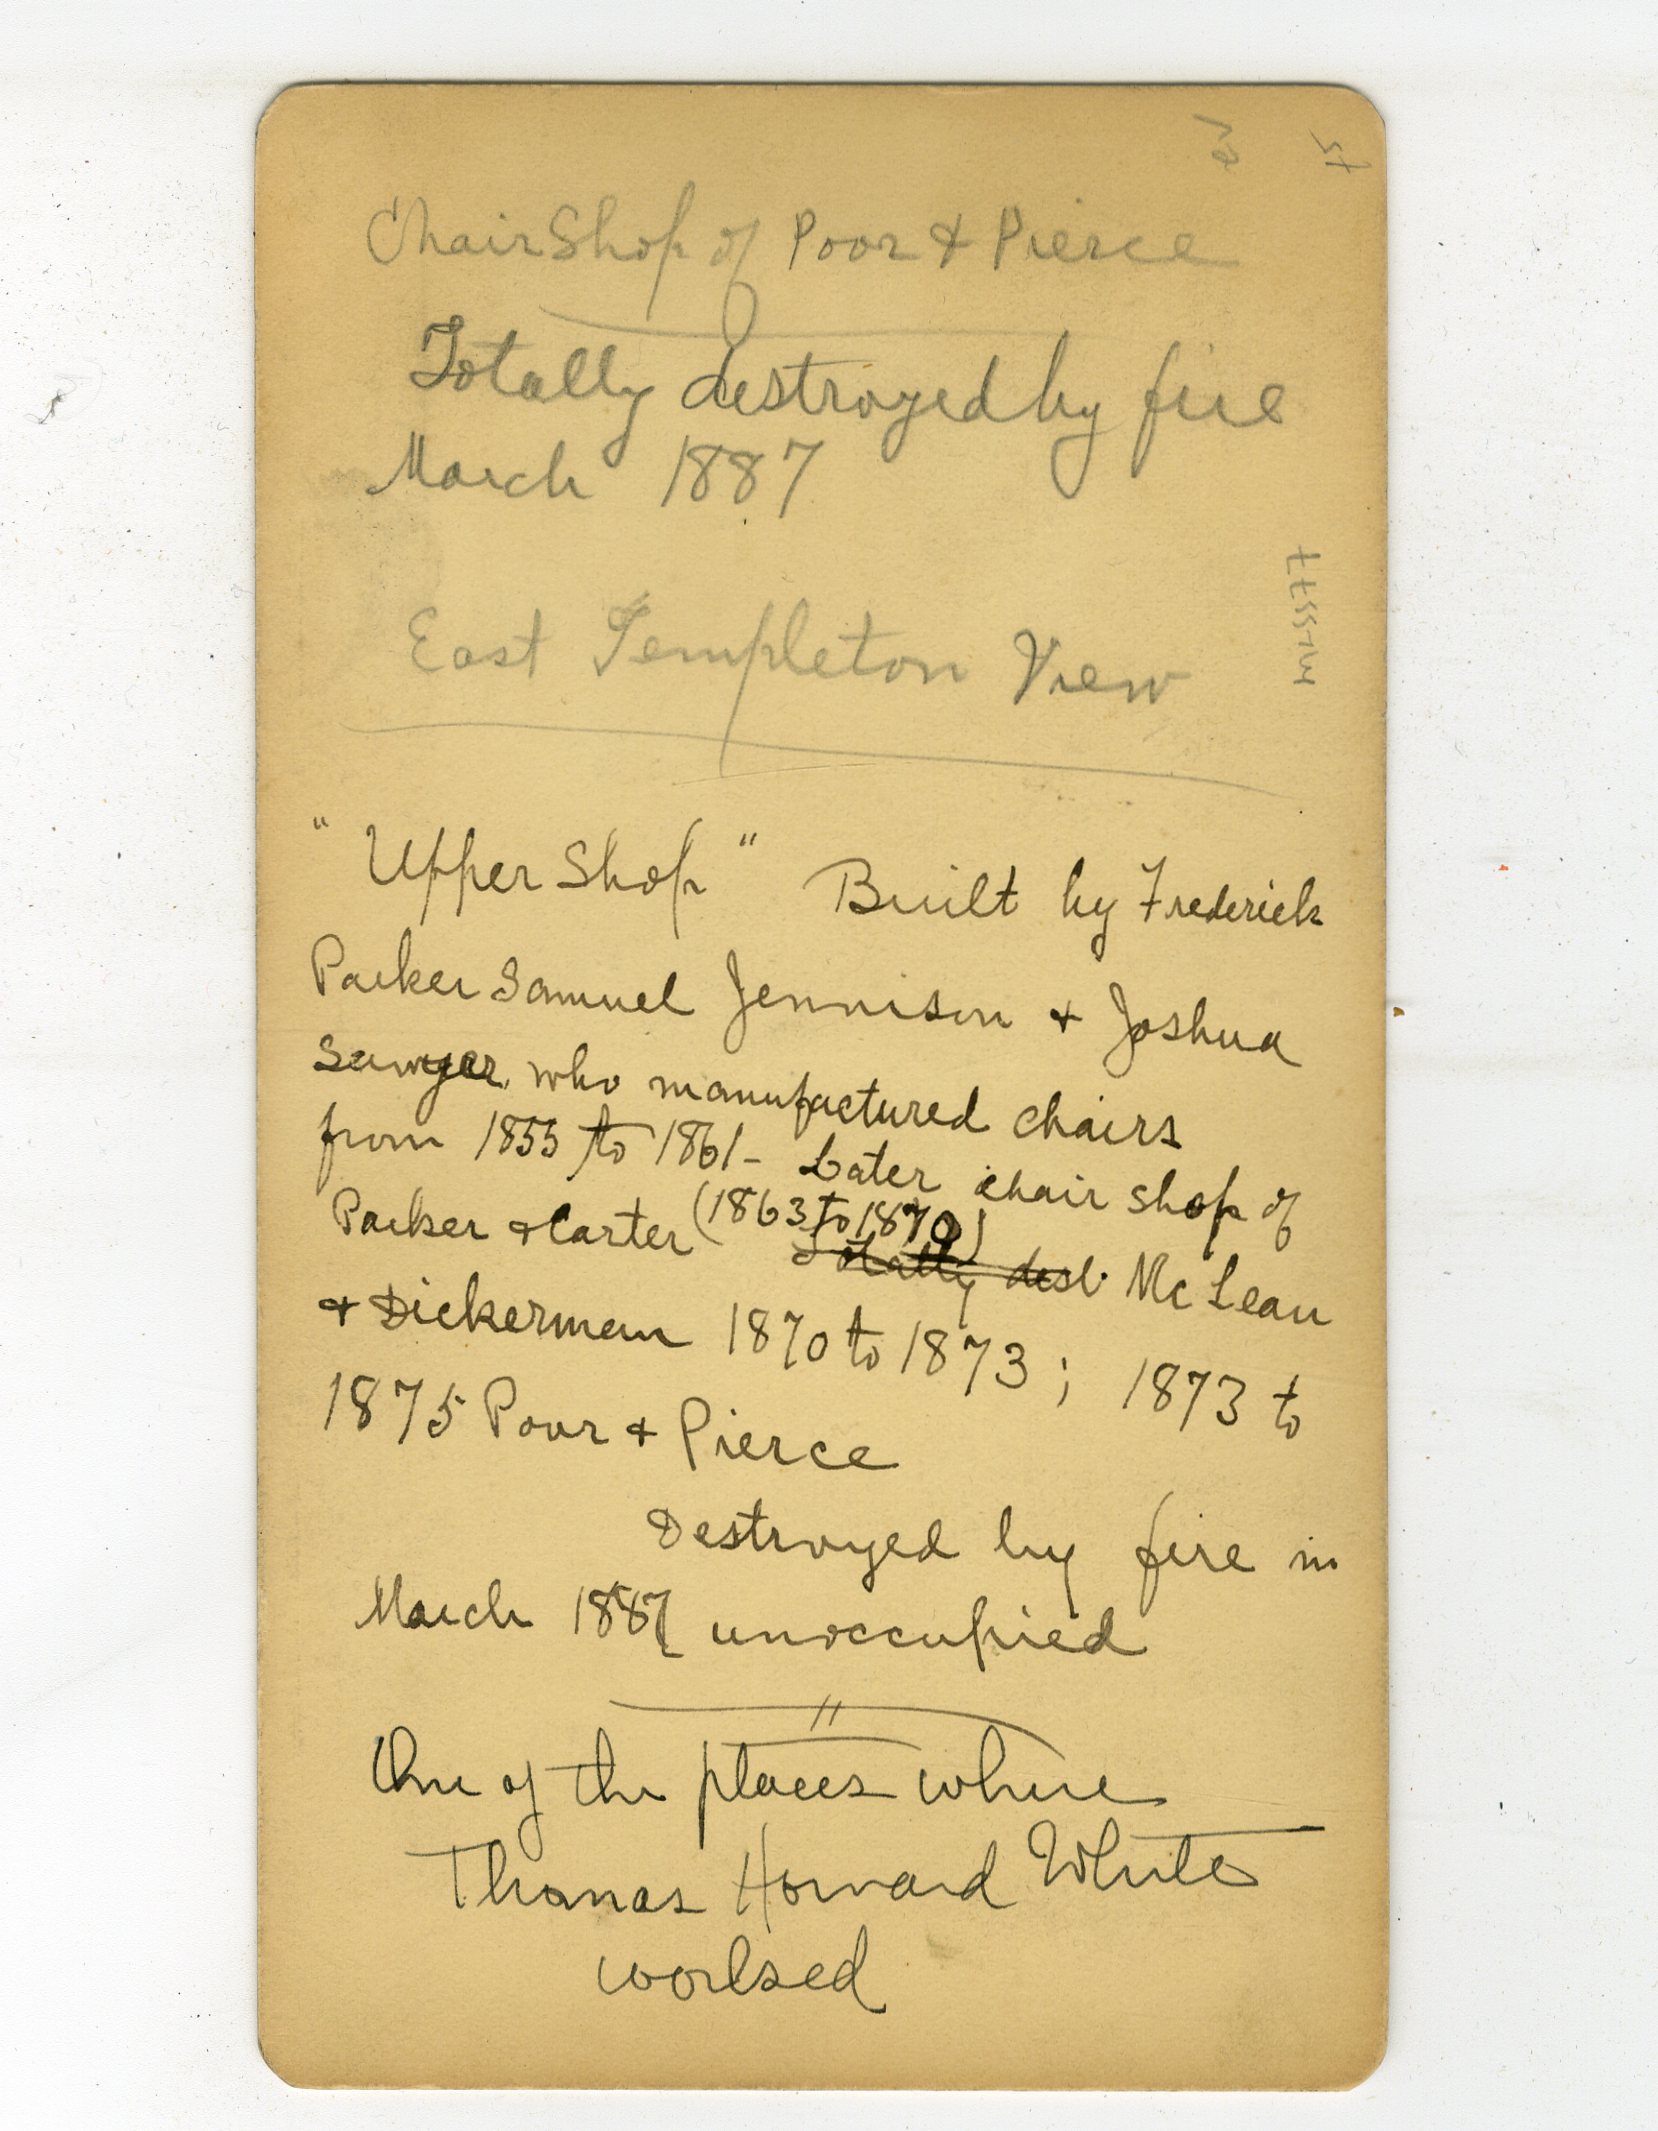 Chair Shop of Poor & Pierce
Totally destroyed by fire
March 1887
East Templeton View
"Upper Shop" Built by Frederick
Parker Samuel Jennison & Joshua
Sawyer who manufactured chairs
from 1855 to 1861- Later chair shop of
Parker & Carter (1863 to 1870) Totally dest. McLean
& Dickerman 1870 to 1873; 1873 to
1875 Poor & Pierce
Destroyed by fire in
March 1887 unoccupied
One of the places where
Thomas Howard White
worked